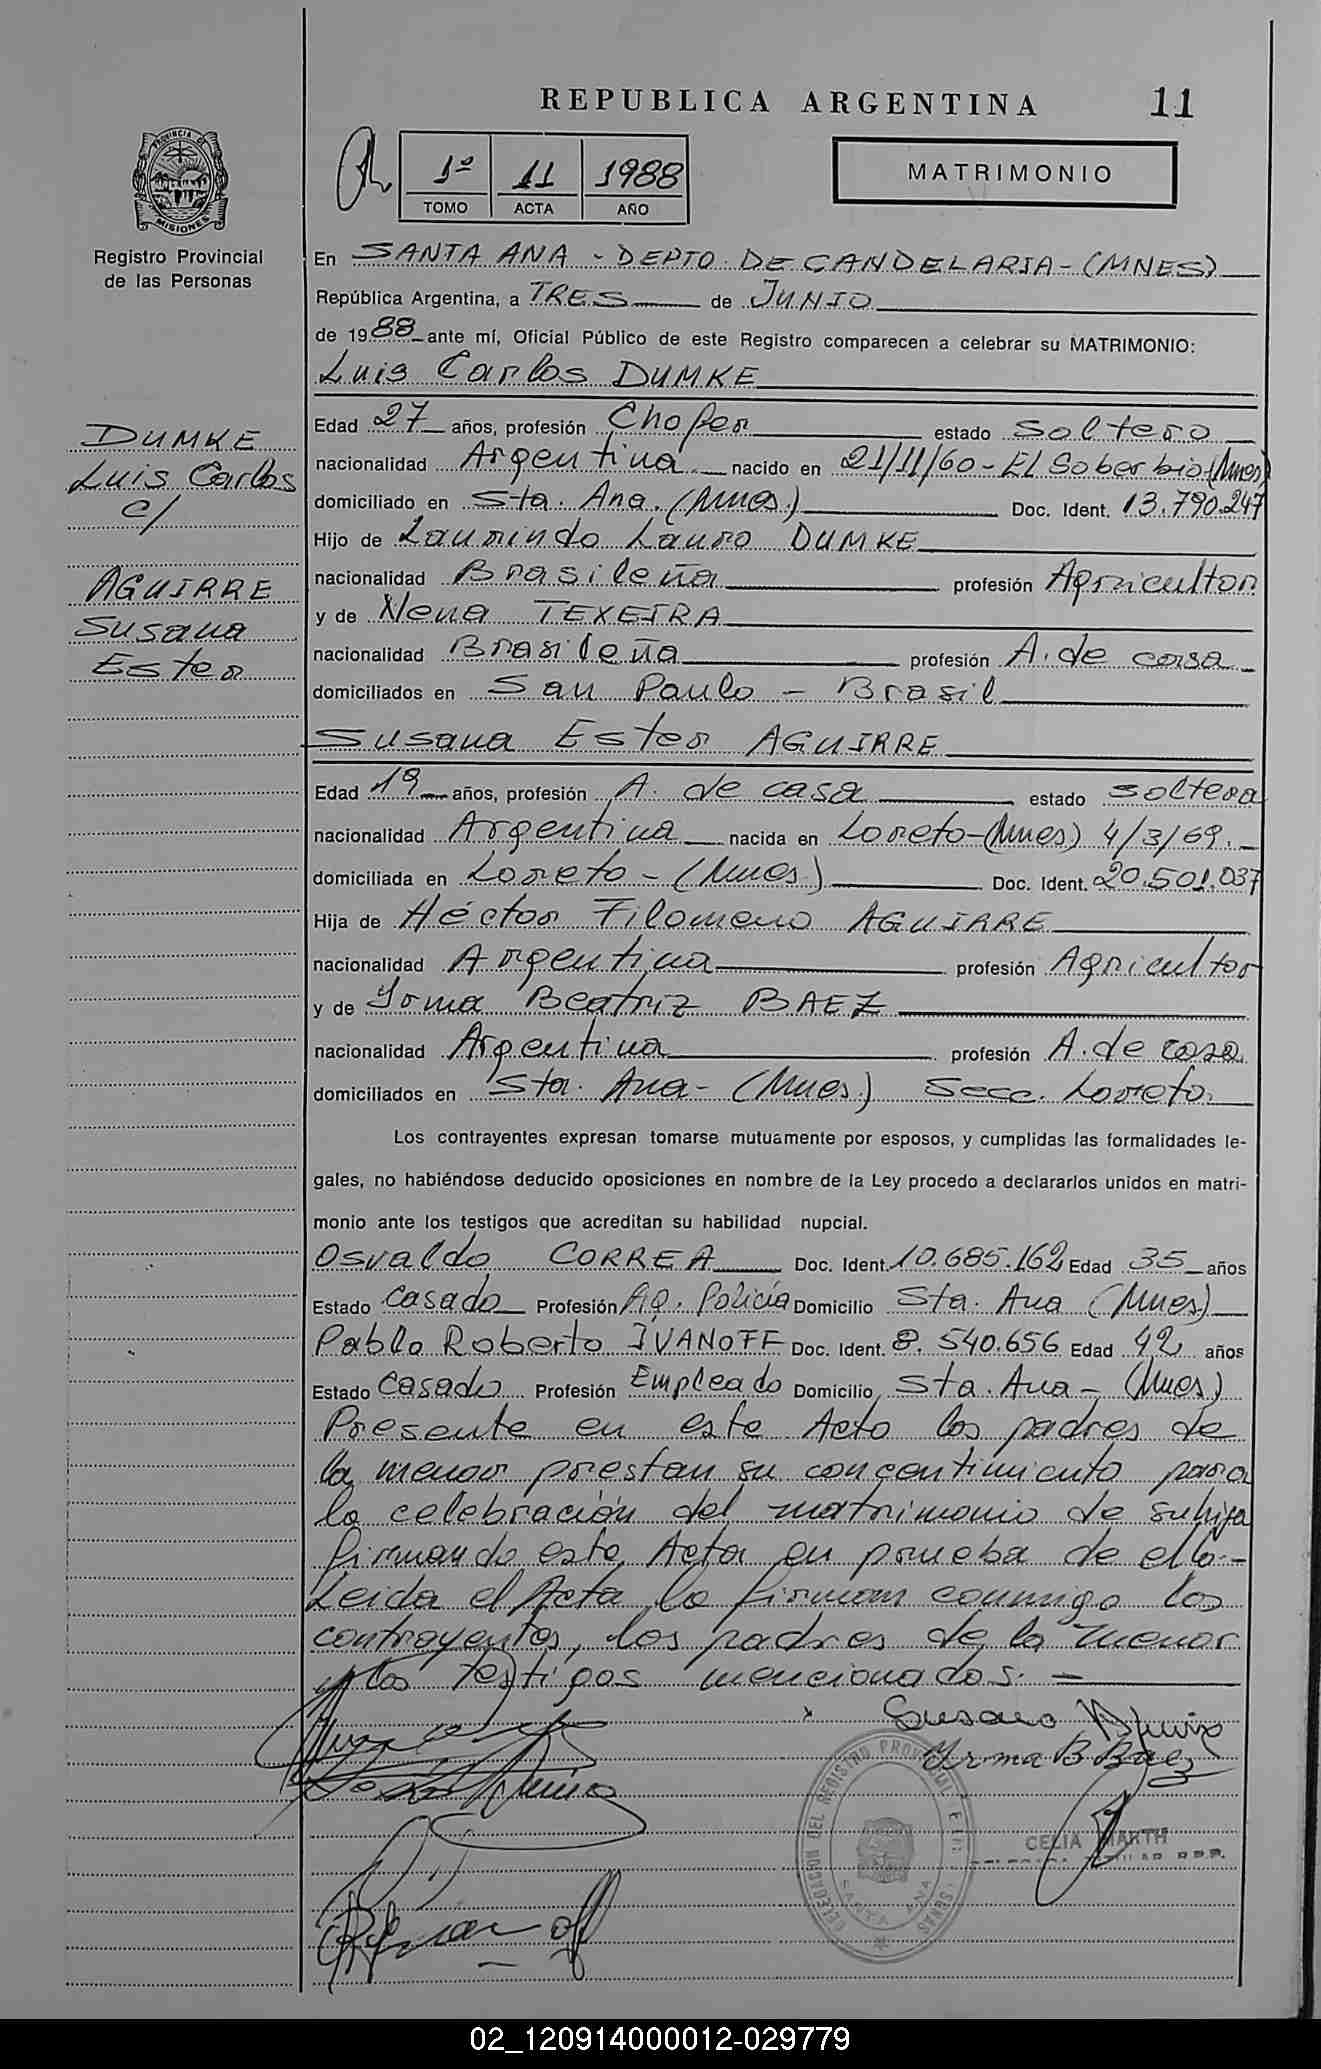 REPUBLICA ARGENTINA
11
PROVINCIA DE MISIONES
Registro Provincial
de las Personas
1º 11 1988
TOMO ACTA AÑO
MATRIMONIO
En SANTA ANA - DEPTO. DE CANDELARIA - (MNES)
República Argentina, a TRES de JUNIO
de 1988 ante mí, Oficial Público de este Registro comparecen a celebrar su MATRIMONIO:
Luis Carlos DUMKE
DUMKE
Luis Carlos
c/
AGUIRRE
Susana
Ester
Edad 27 años, profesión Chofer estado soltero
nacionalidad Argentina nacido en 21/11/60 - El Soberbio (Mnes)
domiciliado en Sta. Ana. (Mnes.) Doc. Ident. 13.790.247
Hijo de Laurindo Lauro DUMKE
nacionalidad Brasileña profesión Agricultor
y de Nena TEXEIRA
nacionalidad Brasileña profesión A. de casa
domiciliados en San Paulo - Brasil
Susana Ester AGUIRRE
Edad 19 años, profesión A. de casa estado soltera
nacionalidad Argentina nacida en Loreto - (Mnes) 4/3/69.
domiciliada en Loreto - (Mnes) Doc. Ident. 20.501.037
Hija de Héctor Filomeno AGUIRRE
nacionalidad Argentina profesión Agricultor
y de Irma Beatriz BAEZ
nacionalidad Argentina profesión A. de casa
domiciliados en Sta. Ana - (Mnes.) Secc. Loreto.
Los contrayentes expresan tomarse mutuamente por esposos, y cumplidas las formalidades le-
gales, no habiéndose deducido oposiciones en nombre de la Ley procedo a declararlos unidos en matri-
monio ante los testigos que acreditan su habilidad nupcial.
Osvaldo CORREA Doc. Ident. 10.685.162 Edad 35 años
Estado Casado Profesión Ag. Policía Domicilio Sta. Ana (Mnes)
Pablo Roberto IVANOFF Doc. Ident. 8.540.656 Edad 42 años
Estado Casado Profesión Empleado Domicilio Sta. Ana - (Mnes)
Presente en este Acto los padres de
la menor prestan su concentimiento para
la celebración del matrimonio de su hija
firmando esta Acta en prueba de ello.-
Leida el Acta la firman conmigo los
contrayentes, los padres de la menor
y los testigos mencionados. -
Susana
Irma B Baez
DELEGACION DEL REGISTRO PROVINCIAL
SANTA ANA
CELIA MARTH
02_120914000012-029779